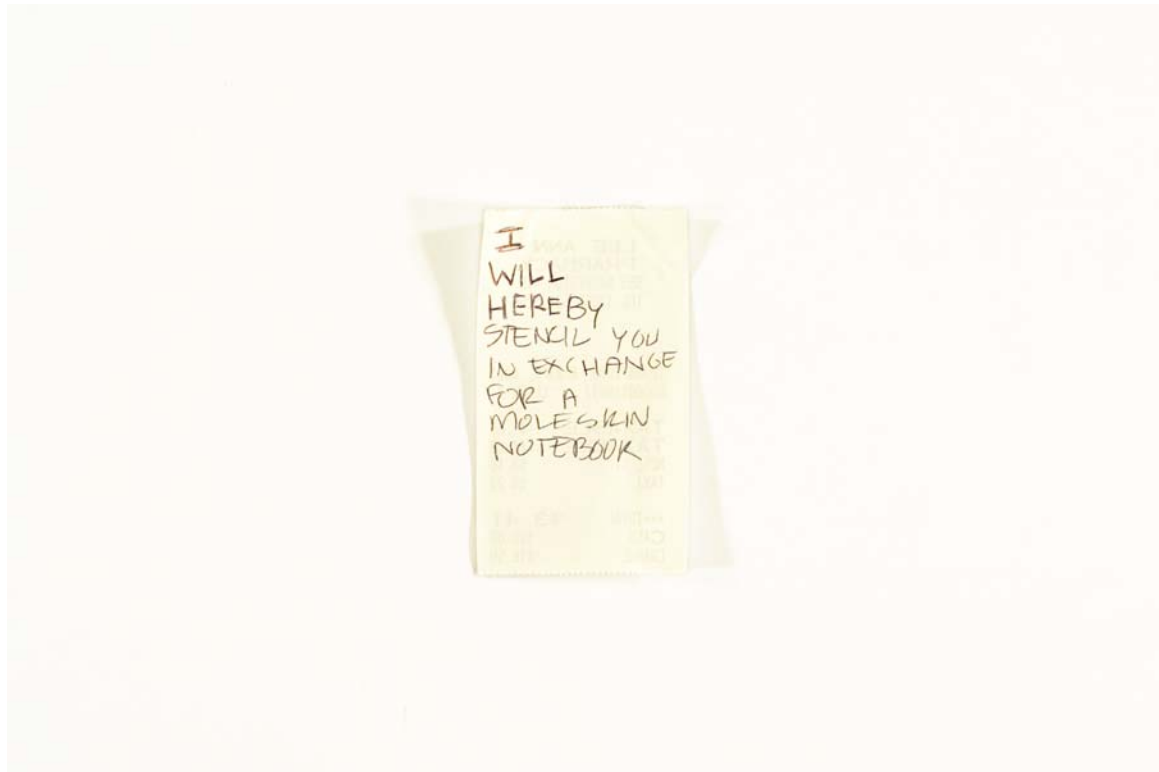 I
WILL
HEREBY
STENCIL YOU
IN EXCHANGE
FOR A
MOLESKIN
NOTEBOOK